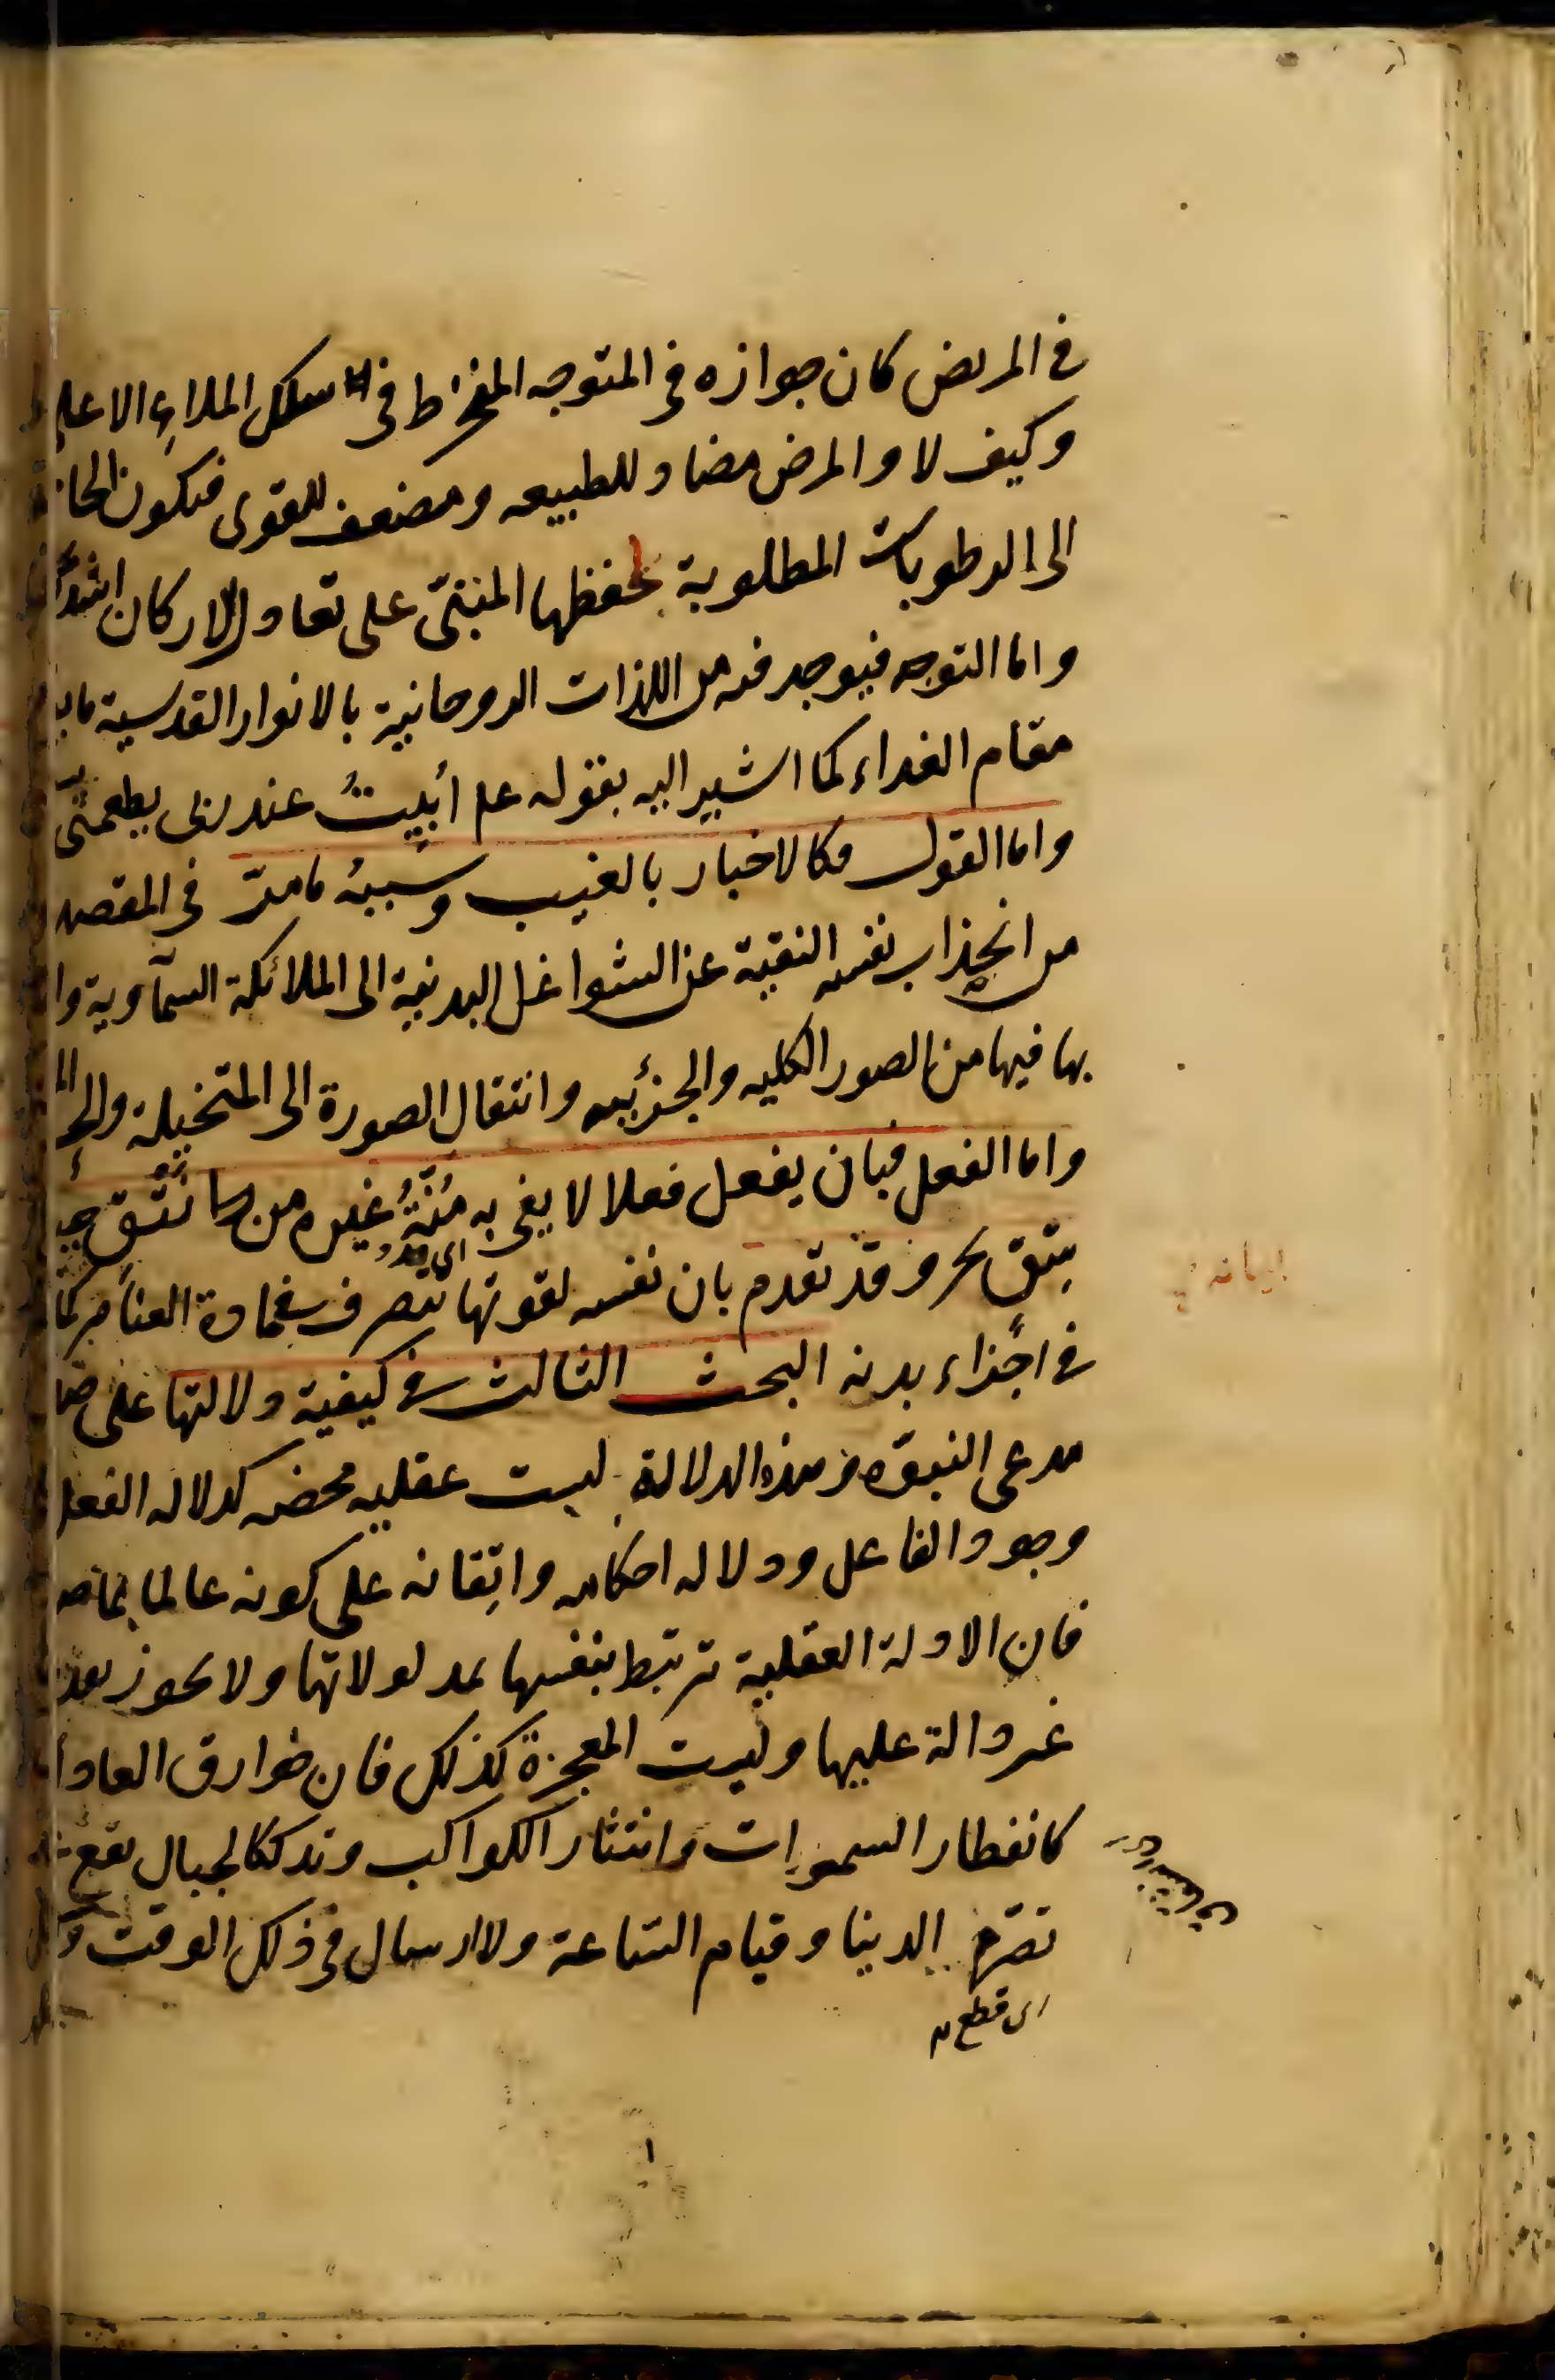 في المريض كان جوازه في المتوجه المنخرط في سلك الملاء الاعلى
وكيف لا والمرض مضاد للطبيعه ومضعف للقوى فيكون
الى الرطوبات المطلوبة لحفظها المبتنى على تعادل الاركان اشد
واما التوجه فيوجد فيه من اللذات الروحانية بالانوار القدسية
مقام الغداء كما اشير اليه بقوله عم أبيتُ عند ربى يطعمنى
واما القول فكالاخبار بالغيب وسببه ما مرّ في المقصد
من انجذاب نفسه النقية عن الشواغل البدنية الى الملائكة السمآوية
بها فيها من الصور الكليه والجزئيه وانتقال الصورة الى المتخيلة
واما الفعل فبان يفعل فعلا لا يفي به مُنّةُ غيره من
بحر وقد تقدم بان نفسه لقوتها تتصرف في مادة العناصر كما
في اجزاء بدنه البحث الثالث في كيفية دلالتها على
مدعى النبوّه وهذه الدلالة ليست عقليه محضه كدلاله الفعل
وجود الفاعل ودلاله احكامه واتقانه على كونه عالما بما
فان الادلة العقلية ترتبط بنفسها بمدلولاتها ولا يجوز
غير دالة عليها وليست المعجزة كذلك فان خوارق
كانفطار السموات وانتثار الكواكب وتدكك الجبال يقع
تصرّم الدينا وقيام السّاعة ولا ارسال في ذلك الوقت
اى قطع